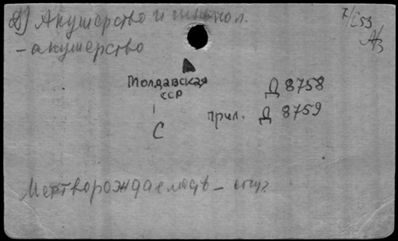 Акушерство и гинекол.
- акушерство
Молдавская
ССР
Д 8758
прил. Д 8759
С
Мертворождаемость -